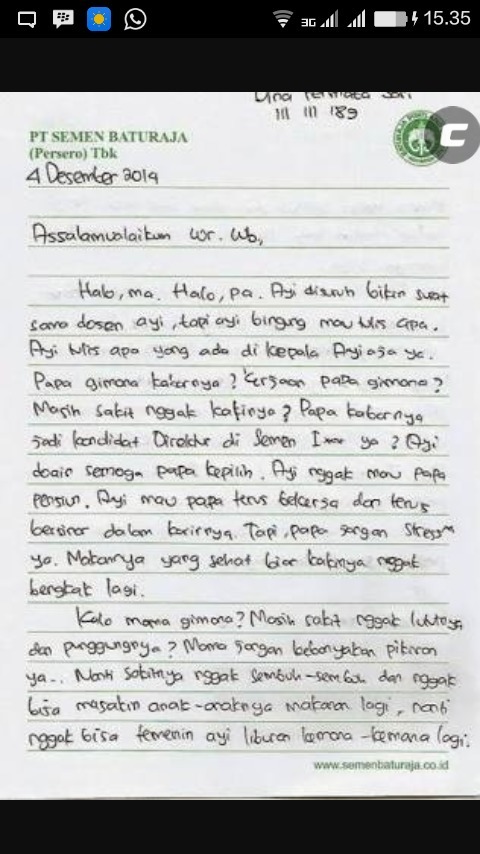 15.35
3G
111 111 189
PT SEMEN BATURAJA
(Persero) Tbk
4 Desember 2014
Assalamualaikum Wr. Wb,
Halo, ma. Halo, pa. Ayi disuruh bikin surat
sama dosen ayi, tapi ayi bingung mau tulis apa.
Ayi tulis apa yang ada di kepala Ayi aja ya.
Papa gimana kabarnya? Kerjaan papa gimana?
Masih sakit nggak kakinya? Papa kabarnya
jadi kandidat Direktur di Semen I*** ya? Ayi
doain semoga papa kepilih. Ayi nggak mau papa
pensiun. Ayi mau papa terus bekerja dan terus
bersinar dalam karirnya. Tapi, papa jangan stress"
ya. Makannya yang sehat biar kakinya nggak
bengkak lagi.
Kalo mama gimana? Masih sakit nggak lututnya
dan punggungnya? Mama jangan kebanyakan pikiran
ya.. Nanti sakitnya nggak sembuh-sembuh dan nggak
bisa masakin anak-anaknya makanan lagi, nanti
nggak bisa temenin ayi liburan kemana-kemana lagi.
www.semenbaturaja.co.id